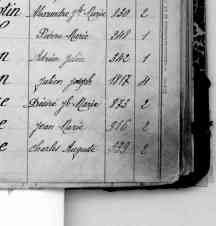 Alexandre Jh Marie 830 2
Pierre Marie 348 1
Adrien Jules 342 1
Julien Joseph 1817 4
Désiré Jh Marie 873 2
Jean Marie 916 2
Charles Auguste 229 2